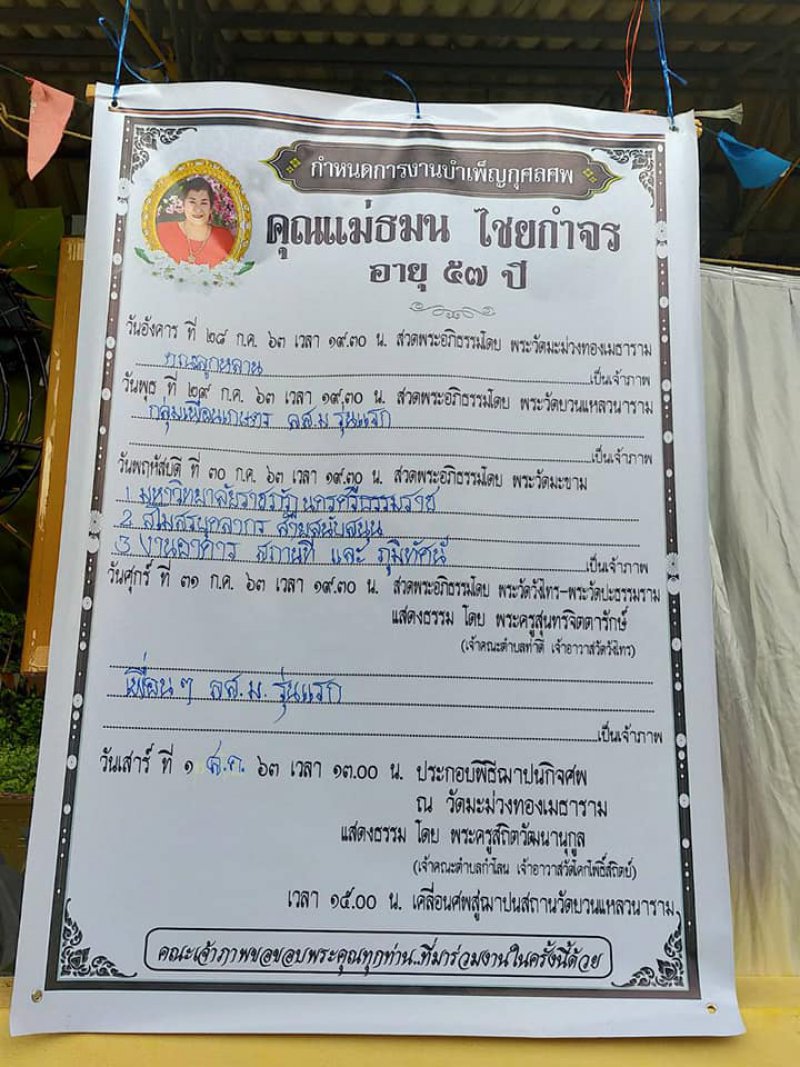 กำหนดการงานบำเพ็ญกุศลศพ
คุณแม่ธมน ไชยกำจร
อายุ ๕๗ ปี
วันอังคาร ที่ ๒๘ ก.ค. ๖๓ เวลา ๑๙.๓๐ น. สวดพระอภิธรรมโดย พระวัดมะม่วงทองเมธาราม
คณะลูกหลาน เป็นเจ้าภาพ
วันพุธ ที่ ๒๙ ก.ค. ๖๓ เวลา ๑๙.๓๐ น. สวดพระอภิธรรมโดย พระวัดยวนแหลวนาราม
กลุ่มเพื่อนเกษตร ลส.ม รุ่นแรก
เป็นเจ้าภาพ
วันพฤหัสบดี ที่ ๓๐ ก.ค. ๖๓ เวลา ๑๙.๓๐ น. สวดพระอภิธรรมโดย พระวัดมะขาม
1. มหาวิทยาลัยราชภัฏนครศรีธรรมราช
2. สโมสรบุคลากร สายสนับสนุน
3. งานอาคาร สถานที่ และ ภูมิทัศน์ เป็นเจ้าภาพ
วันศุกร์ ที่ ๓๑ ก.ค. ๖๓ เวลา ๑๙.๓๐ น. สวดพระอภิธรรมโดย พระวัดวังไทร-พระวัดปะธรรมาราม
แสดงธรรม โดย พระครูสุนทรจิตตารักษ์
(เจ้าคณะตำบลท่าดี เจ้าอาวาสวัดวังไทร)
เพื่อน ๆ ลส.ม. รุ่นแรก
เป็นเจ้าภาพ
วันเสาร์ ที่ ๑ ส.ค. ๖๓ เวลา ๑๓.๐๐ น. ประกอบพิธีฌาปนกิจศพ
ณ วัดมะม่วงทองเมธาราม
แสดงธรรม โดย พระครูสถิตวัฒนานุกูล
(เจ้าคณะตำบลกำโลน เจ้าอาวาสวัดโคกโพธิ์สถิตย์)
เวลา ๑๕.๐๐ น. เคลื่อนศพสู่ฌาปนสถานวัดยวนแหลวนาราม
คณะเจ้าภาพขอขอบพระคุณทุกท่าน..ที่มาร่วมงานในครั้งนี้ด้วย